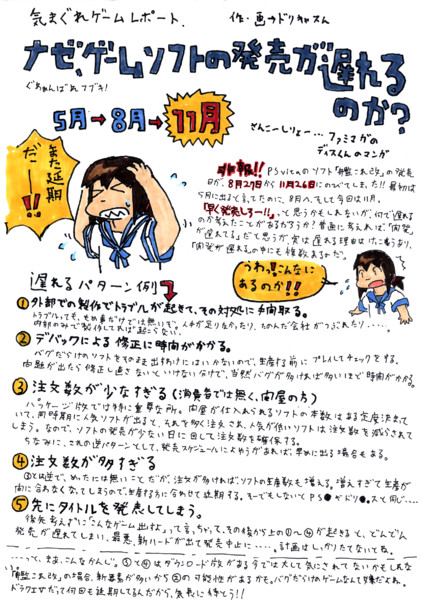 気まぐれゲームレポート.
作・画→ドリキャスん
ナゼ、ゲームソフトの発売が遅れる
のか?
がんばれフブキ!
5月→8月→11月
さんこーしりょー…ファミマガの
ディスくんのマンガ
また延期
だー!!
非報!! PSvitaのソフト「艦これ改」の発売
日が、8月27日から11月26日にのびてしまった!!最初は
5月に出ると言ってたのに、8月へ、そして今回は11月。
「早く発売しろー!!」と思うかもしれないが、何で遅れる
のか考えたことがあるだろうか?普通に考えれば「開発
が遅れてる」だと思うが、実は遅れる理由はけっこうあり、
「開発が遅れる」の中にも複数あるのだ。
うわっ!こんなに
あるのか!!
遅れるパターン例
①外部での製作でトラブルが起きて、その対処に時間取る。
トラブルっても、もめ事だけでは無いぞ。人手が足りなかったり、たのんだ会社がつぶれたり……。
内部のみで製作してれば起こらない。
②デバックによる修正に時間がかかる。
バグだらけのソフトをそのまま出すわけにはいかないので、生産する前にプレイしてチェックをする。
問題が出たら修正し直さないといけないわけで、当然バグが多ければ多いほど時間がかかる。
③注文数が少なすぎる(消費者では無く、問屋の方)
パッケージ版では特に重要な所。問屋が仕入れられるソフトの本数はある程度決まって
いて、同時期に人気ソフトが出ると、それを多く注文され、人気が低いソフトは注文数を減らされて
しまう。なので、ソフトの発売が少ない日に回して注文数を確保する。
ちなみに、これの逆パターンとして、発売スケジュールによゆうがあれば、早めに出る場合もある。
④注文数が多すぎる
③とは逆で、めったには無いことだが、注文が多ければソフトの生産数も増える。増えすぎて生産が
間に合わなくなってしまうので、生産する方に合わせて延期する。
⑤先にタイトルを発表してしまう。
後先考えずに「こんなゲーム出すよ」って言っちゃって、その後から上の①〜④が起きると、どんどん
発売が遅れてしまい、最悪、新ハードが出て発売中止に……。計画はしっかりたてないとね。
……って、まぁ、こんなかんじ。③と④はダウンロード版がある今では大して気にされてないかもしれない
「艦これ改」の場合、新要素が多いから②の可能性がまるかも。バグだらけのゲームなんて嫌だよね。
ドラクエ7だって何回も延期してるんだから、気長に待とう!!